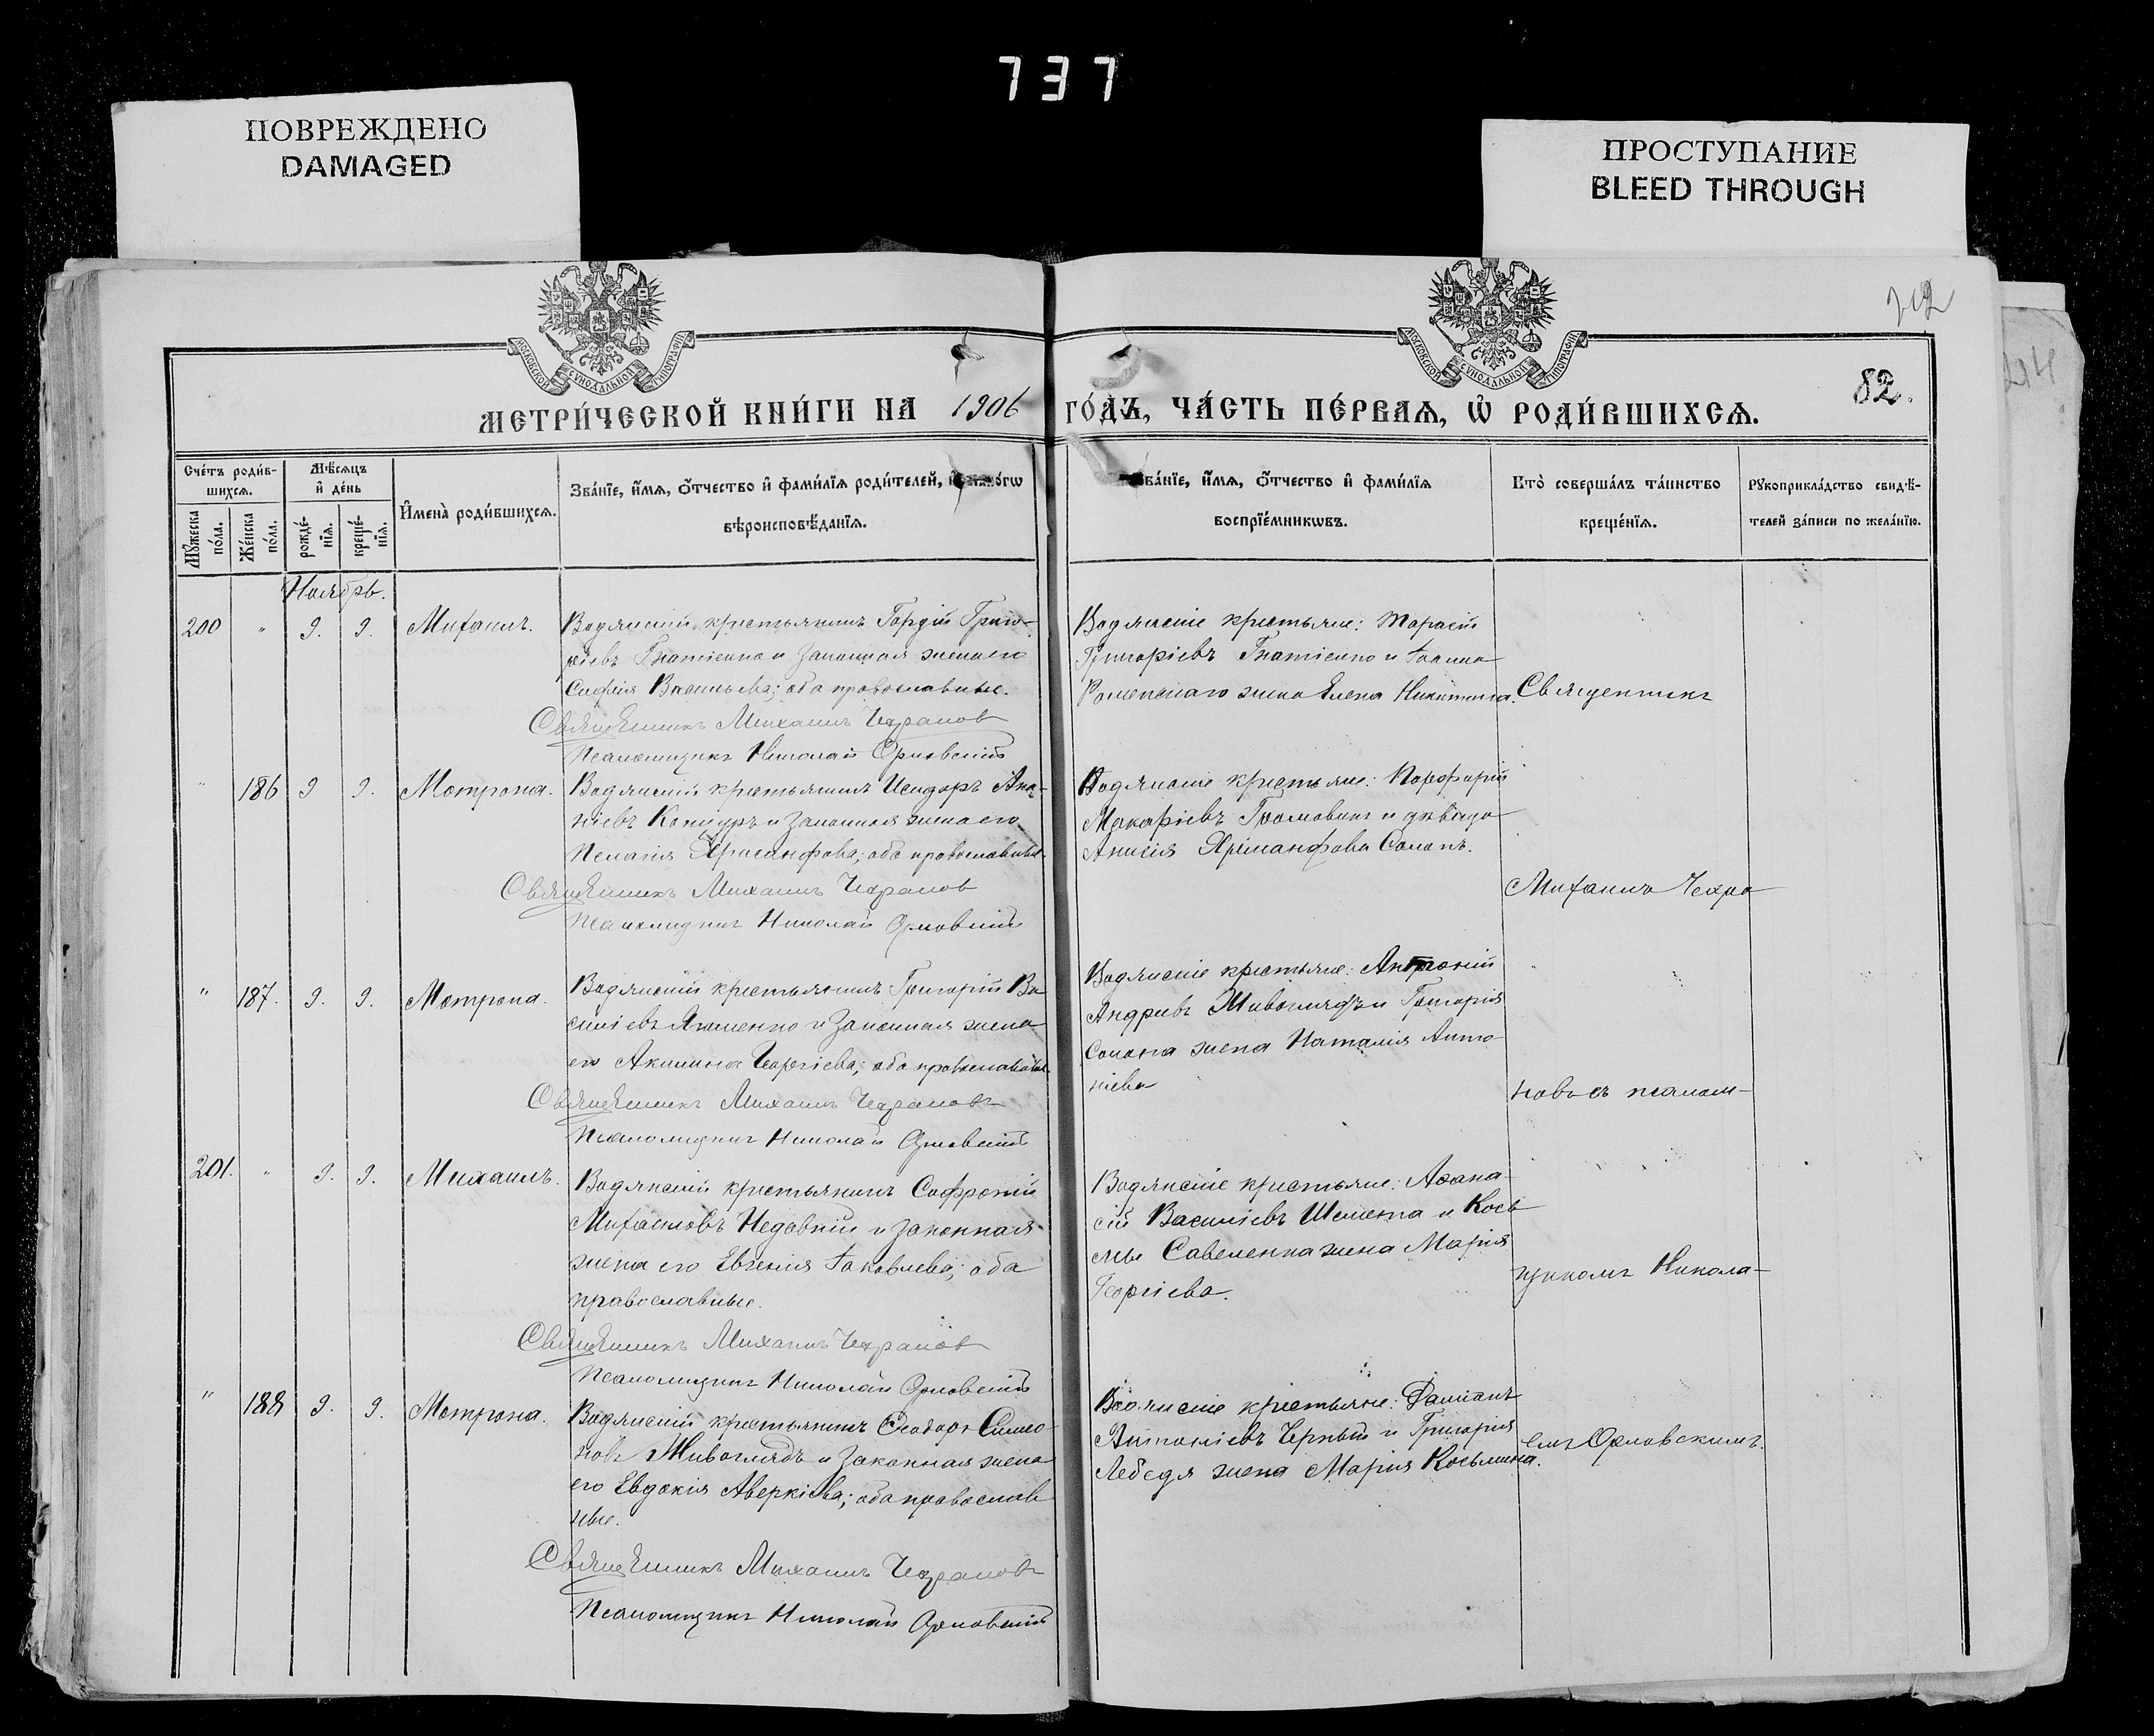 737
ПОВРЕЖДЕНО
DAMAGED
ПРОСТУПАНИЕ
BLEED THROUGH
МОСКОВСКОЙ СУНОДАЛЬНОЙ ТИПОГРАФІИ
МОСКОВСКОЙ СУНОДАЛЬНОЙ ТИПОГРАФІИ
202
82.
МЕТРИ́ЧЕСКОЙ КНИ́ГИ НА 1906
ГО́ДЪ, ЧА́СТЬ ПЕ́РВАѦ, Ѡ҆ РОДИ́ВШИХСѦ.
Сче́тъ роди́в-
шихсѧ.
Мꙋ́жеска по́ла.
Же́нска по́ла.
Мѣ́сѧцъ
и҆ де́нь
рожде́-
нїѧ.
креще́-
нїѧ.
И҆мена̀ роди́вшихсѧ.
Зва́нїе, и҆́мѧ, ѻ҆́тчество и҆ фами́лїѧ роди́телей, и҆
вѣроисповѣ́данїѧ.
Зва́нїе, и҆́мѧ, ѻ҆́тчество и҆ фами́лїѧ
воспрїе́мникѡвъ.
Кто̀ соверша́лъ та́инство
креще́нїѧ.
Рꙋкоприкла́дство свидѣ́-
телей за́писи по жела́нїю.
Ноябрь.
200 " 9. 9. Михаилъ.
Водянскій крестьянинъ Гордій Григо-
ріевъ Гнатіенко и законная жена его
Софія Васильева; оба православные.
Священникъ Михаилъ Чехранов
Псаломщикъ Николай Орловскій
Водянскіе крестьяне: Тарасій
Григоріевъ Гнатіенко и Іоанна
Роменскаго жена Елена Никитина.
" 186 9 9. Мотрона.
Водянскій крестьянинъ Исидоръ Ана-
ніевъ Коцуръ и законная жена его
Пелагія Хрисанфова; оба православные.
Священникъ Михаилъ Чехранов
Псаломщикъ Николай Орловскій
Водянскіе крестьяне: Порфирій
Макаріевъ Громовикъ и дѣвица
Анисія Хрисанфова Солопъ.
" 187. 9. 9. Мотрона.
Водянскій крестьянинъ Григорій Ва
силіевъ Якименко и законная жена
его Акилина Георгіева; оба православные.
Священникъ Михаилъ Чехрановъ
Псаломщикъ Николай Орловскій
Водянскіе крестьяне: Антоній
Андреевъ Живоглядъ и Григорія
Солопа жена Наталія Анто-
ніева
201. " 9. 9. Михаилъ.
Водянскій крестьянинъ Софроній
Михаиловъ Недавній и законная
жена его Евгенія Іаковлева; оба
православные.
Священникъ Михаилъ Чехранов
Псаломщикъ Николай Орловскій
Водянскіе крестьяне: Аѳана-
сій Василіевъ Шелета и Косъ
мы Савеленка жена Марія
Георгіева.
" 188 9. 9. Мотрона.
Водянскій крестьянинъ Ѳеодоръ Симо-
новъ Живоглядъ и законная жена
его Евдокія Аверкіева; оба православ
ные.
Священникъ Михаилъ Чехрановъ
Псаломщикъ Николай Орловскій
Водянскіе крестьяне: Даміанъ
Антоніевъ Черный и Григорія
Лебедя жена Марія Косьмина.
Священникъ
Михаилъ Чехра
новъ съ псалом-
щикомъ Никола-
емъ Орловскимъ.